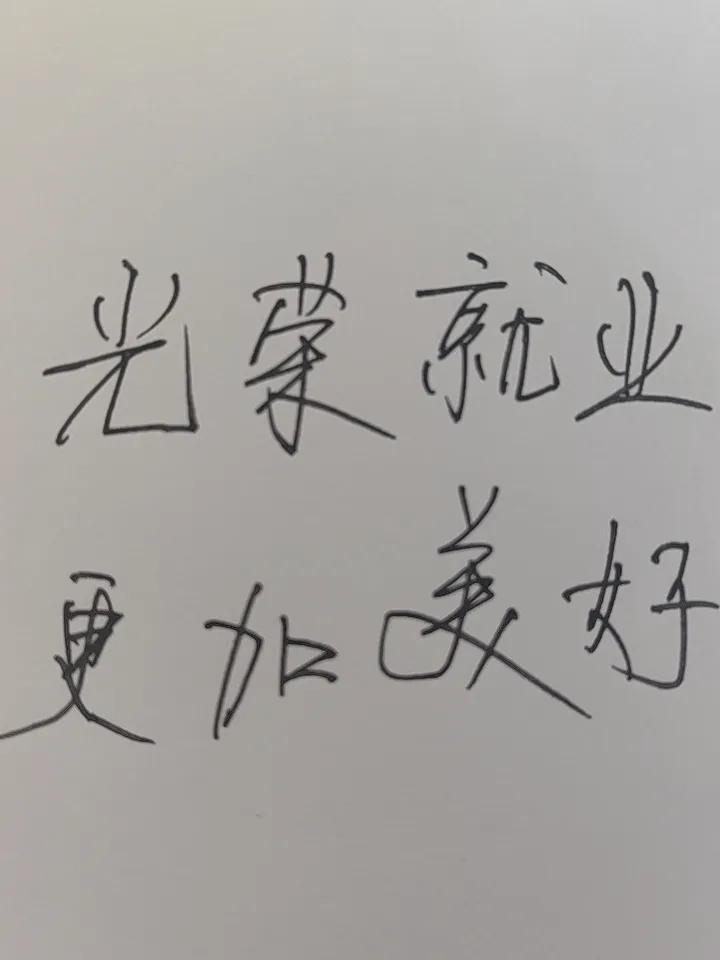 光荣就业
更加美好